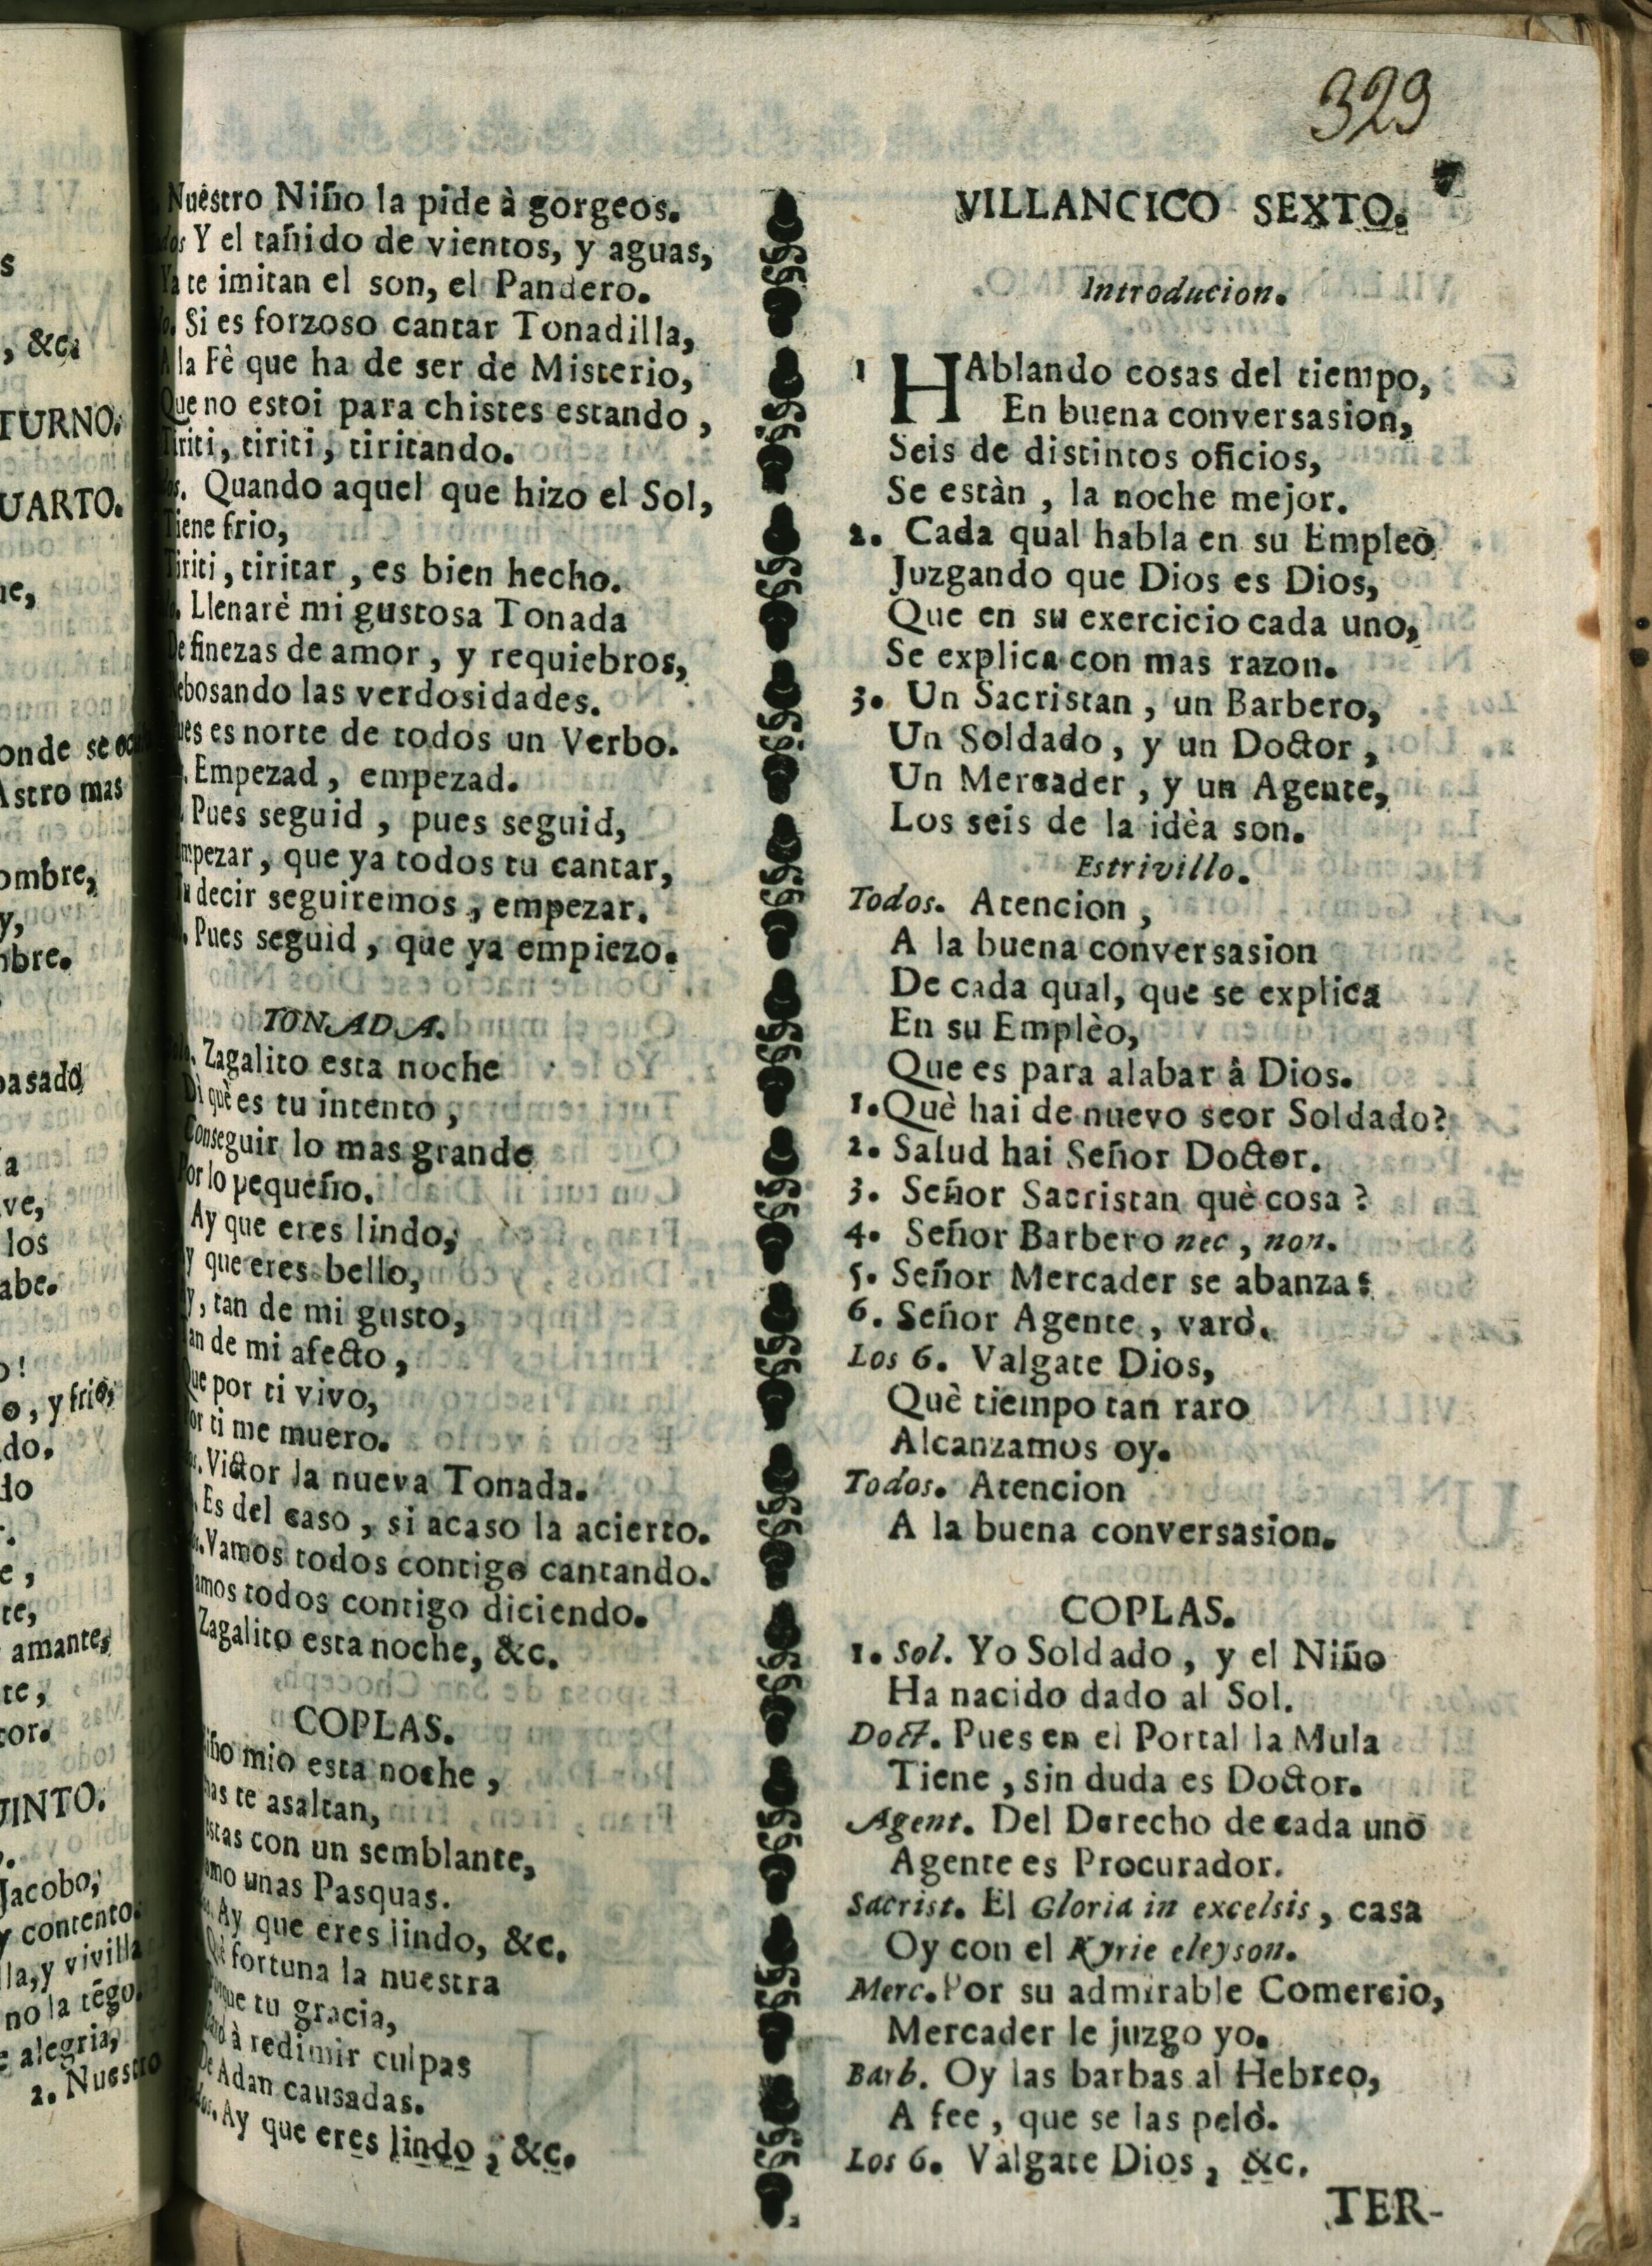 329
7
Nuestro Niño la pide à gorgeos.
Y el tañido de vientos, y aguas,
Ya te imitan el son, el Pandero.
Si es forzoso cantar Tonadilla,
A la Fè que ha de ser de Misterio,
Que no estoi para chistes estando,
Tiriti, tiriti, tiritando.
Quando aquel que hizo el Sol,
Tiene frio,
Tiriti, tiritar, es bien hecho.
Llenarè mi gustosa Tonada
De finezas de amor, y requiebros,
Rebosando las verdosidades.
Pues es norte de todos un Verbo.
Empezad, empezad.
Pues seguid, pues seguid,
Empezar, que ya todos tu cantar,
Tu decir seguiremos, empezar.
Pues seguid, que ya empiezo.
TONADA.
Zagalito esta noche
Dì què es tu intento,
Conseguir lo mas grande
Por lo pequeño.
Ay que eres lindo,
y que eres bello,
y, tan de mi gusto,
Tan de mi afecto,
Que por ti vivo,
Por ti me muero.
Victor la nueva Tonada.
Es del caso, si acaso la acierto.
Vamos todos contigo cantando.
Vamos todos contigo diciendo.
Zagalito esta noche, &c.
COPLAS.
Niño mio esta noche,
te asaltan,
con un semblante,
Como unas Pasquas.
Ay que eres lindo, &c.
Què fortuna la nuestra
Porque tu gracia,
à redimir culpas
De Adan causadas.
Ay que eres lindo, &c.
VILLANCICO SEXTO.
Introducion.
1 HAblando cosas del tiempo,
En buena conversasion,
Seis de distintos oficios,
Se estàn, la noche mejor.
2. Cada qual habla en su Empleò
Juzgando que Dios es Dios,
Que en su exercicio cada uno,
Se explica con mas razon.
3. Un Sacristan, un Barbero,
Un Soldado, y un Doctor,
Un Mercader, y un Agente,
Los seis de la idèa son.
Estrivillo.
Todos. Atencion,
A la buena conversasion
De cada qual, que se explica
En su Emplèo,
Que es para alabar à Dios.
1. Què hai de nuevo seor Soldado?
2. Salud hai Señor Doctor.
3. Señor Sacristan què cosa?
4. Señor Barbero nec, non.
5. Señor Mercader se abanza:
6. Señor Agente, varò.
Los 6. Valgate Dios,
Què tiempo tan raro
Alcanzamos oy.
Todos. Atencion
A la buena conversasion.
COPLAS.
1. Sol. Yo Soldado, y el Niño
Ha nacido dado al Sol.
Doct. Pues en el Portal la Mula
Tiene, sin duda es Doctor.
Agent. Del Derecho de cada uno
Agente es Procurador.
Sacrist. El Gloria in excelsis, casa
Oy con el Kyrie eleyson.
Merc. Por su admirable Comercio,
Mercader le juzgo yo.
Barb. Oy las barbas al Hebreo,
A fee, que se las pelò.
Los 6. Valgate Dios, &c.
TER-